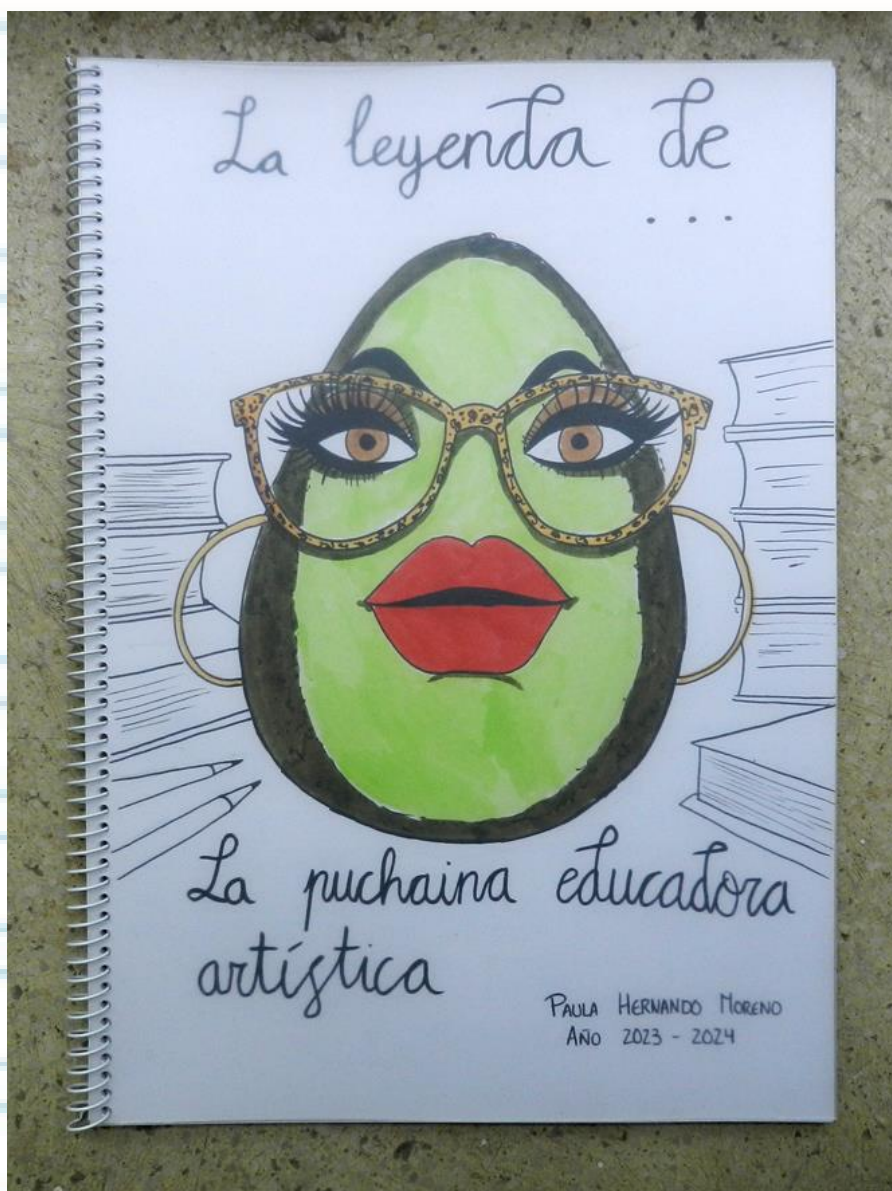 La leyenda de
...
La puchaina educadora
artística
PAULA HERNANDO MORENO
AÑO 2023 - 2024